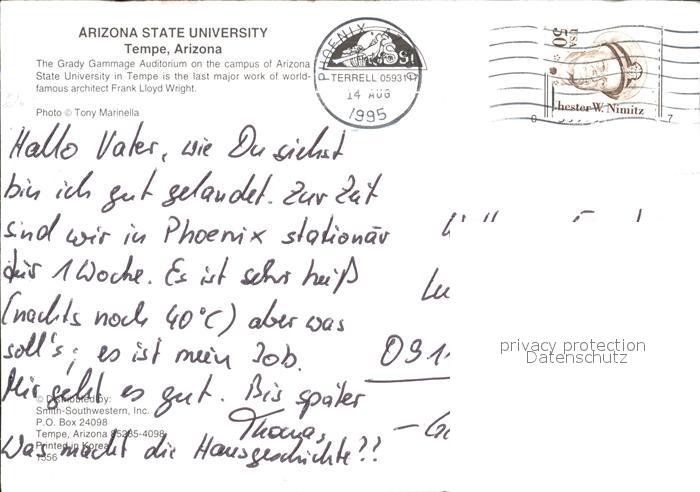 ARIZONA STATE UNIVERSITY
Tempe, Arizona
The Grady Gammage Auditorium on the campus of Arizona
State University in Tempe is the last major work of world-
famous architect Frank Lloyd Wright.
Photo © Tony Marinella
PHOENIX
TERRELL 05931
14 AUG
1995
USA
50
hester W. Nimitz
Hallo Vater, wie Du siehst
bin ich gut gelandet. Zur Zeit
sind wir in Phoenix stationär
für 1 Woche. Es ist sehr heiß
(nachts noch 40°C) aber was
soll's, es ist mein Job.
Mir geht es gut. Bis später
Thomas
Was macht die Hausgeschichte??
091
© Distributed by:
Smith-Southwestern, Inc.
P.O. Box 24098
Tempe, Arizona 85285-4098
Printed in Korea
1356
privacy protection
Datenschutz